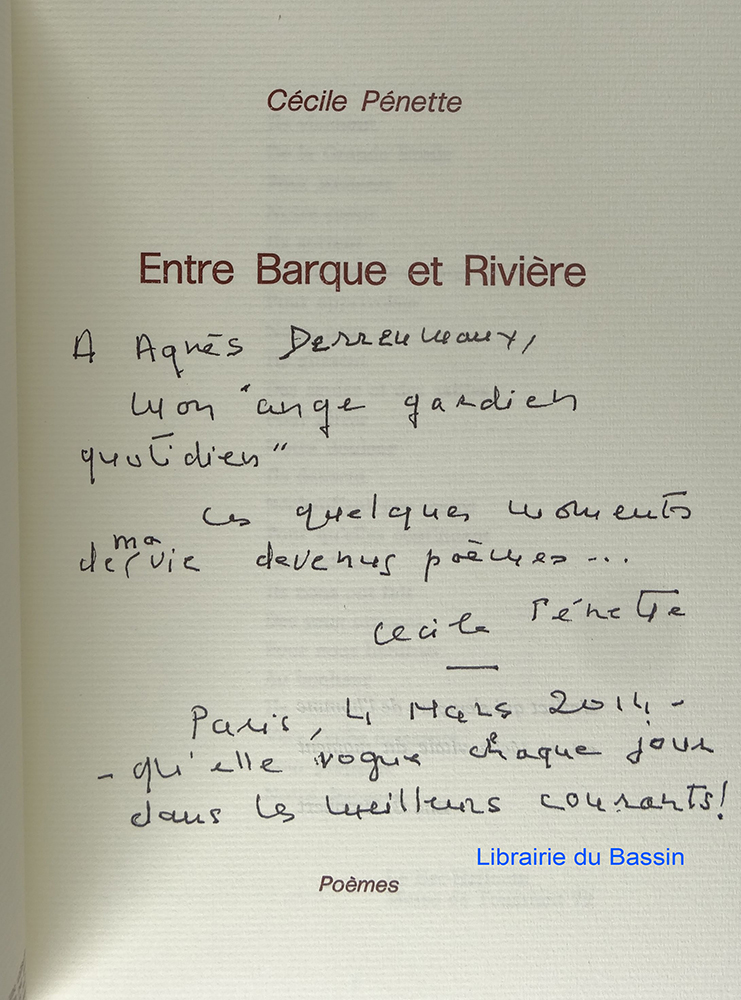 Cécile Pénette
Entre Barque et Rivière
A Agnès Derrenneaux,
mon "ange gardien
quotidien"
ces quelques moments
de ma vie devenus poèmes...
Cécile Pénette
Paris, 4 Mars 2014 -
- qu'elle vogue chaque jour
dans les meilleurs courants!
Librairie du Bassin
Poèmes